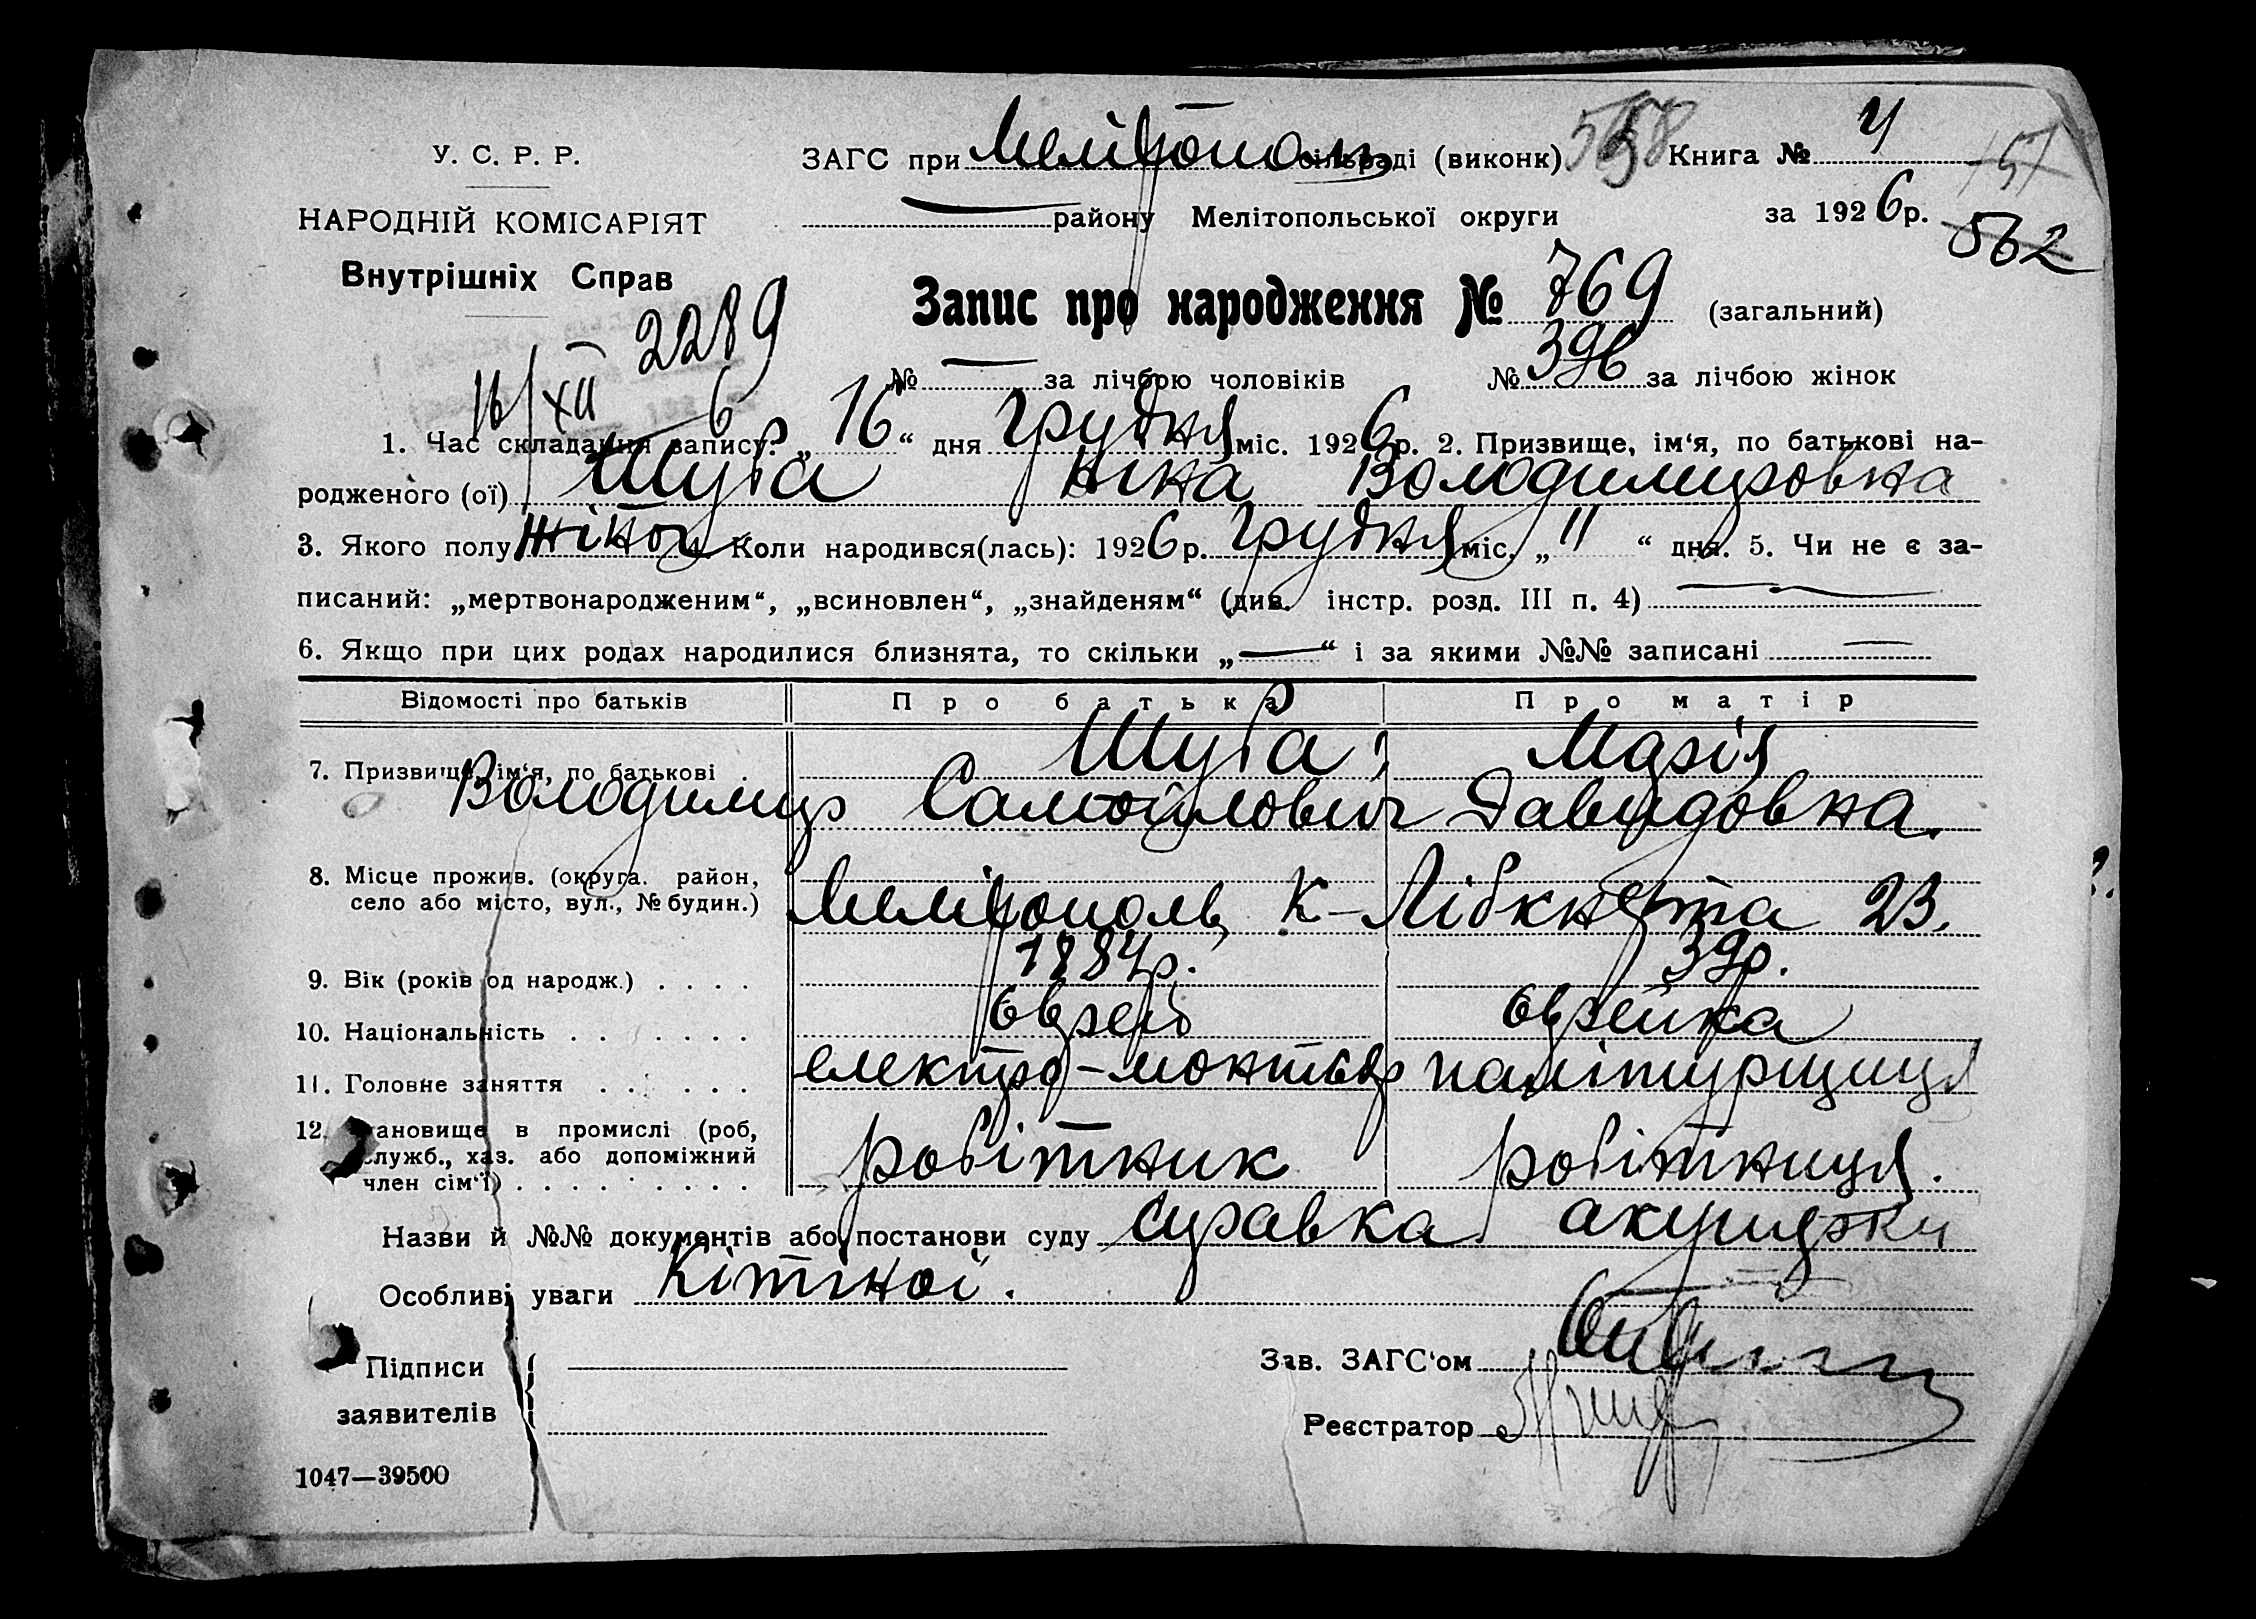 У. С. Р. Р.
ЗАГС при Мелітополь сільраді (виконк) Книга № 4
НАРОДНІЙ КОМІСАРІЯТ
району Мелітопольської округи за 1926р.
562
Внутрішніх Справ
Запис про народження № 769 (загальний)
2289
№ — за лічбою чоловіків № 396 за лічбою жінок
16/XII 6
1. Час складання запису: „16“ дня Грудня міс. 1926р. 2. Призвище, ім‘я, по батькові на-
родженого (ої) Шуба Ніна Володимировна
3. Якого полу жіноч 4. Коли народився(лась): 1926р. Грудня міс. „11“ дня. 5. Чи не є за-
писаний: „мертвонародженим“, „всиновлен“, „знайденям“ (див. інстр. розд. III п. 4) —
6. Якщо при цих родах народилися близнята, то скільки „—“ і за якими №№ записані —
Відомості про батьків Про батька Про матір
7. Призвище, ім‘я, по батькові . Шуба Марія
Володимир Самойлович Давидовна.
8. Місце прожив. (округа. район,
село або місто, вул., № будин.) Мелітополь, К-Лібкнехта 23.
9. Вік (років од народж.) . . . . 1884р. 39р.
10. Національність . . . . . . . єврей єврейка
11. Головне заняття . . . . . . електро-монтьор палітурщиця
12. тановище в промислі (роб,
служб., хаз. або допоміжний
член сім‘ї) . . . . . . . . . . робітник робітниця.
Назви й №№ документів або постанови суду справка акушерки
Особливі уваги Кітіної.
Підписи
заявителів
Зав. ЗАГС‘ом
Реєстратор
1047—39500